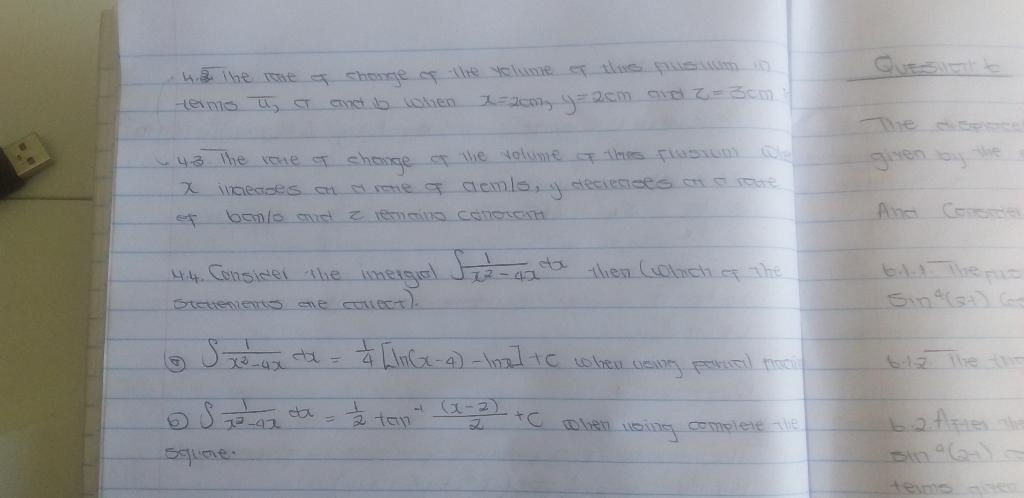 4.2 The rate of change of the volume of this frustum in
terms u, a and b when x=2cm, y=2cm and z=3cm
4.3 The rate of change of the volume of this frustum
x increases at a rate of acm/s, y decreases at a rate
of bcm/s and z remains constant
4.4. Consider the integral ∫ 1/(x²-4x) dx then (which of the
statements are correct).
(a) ∫ 1/(x²-4x) dx = 1/4 [ln(x-4) - lnx] + c when using partial
(b) ∫ 1/(x²-4x) dx = 1/2 tan⁻¹ (x-2)/2 + c when using complete the
square.
Question 6
The
given by the
And Consider
6.1.1. The
sin⁴(3t)
6.1.2 The
6.2 After the
sin⁴(2t)
terms given